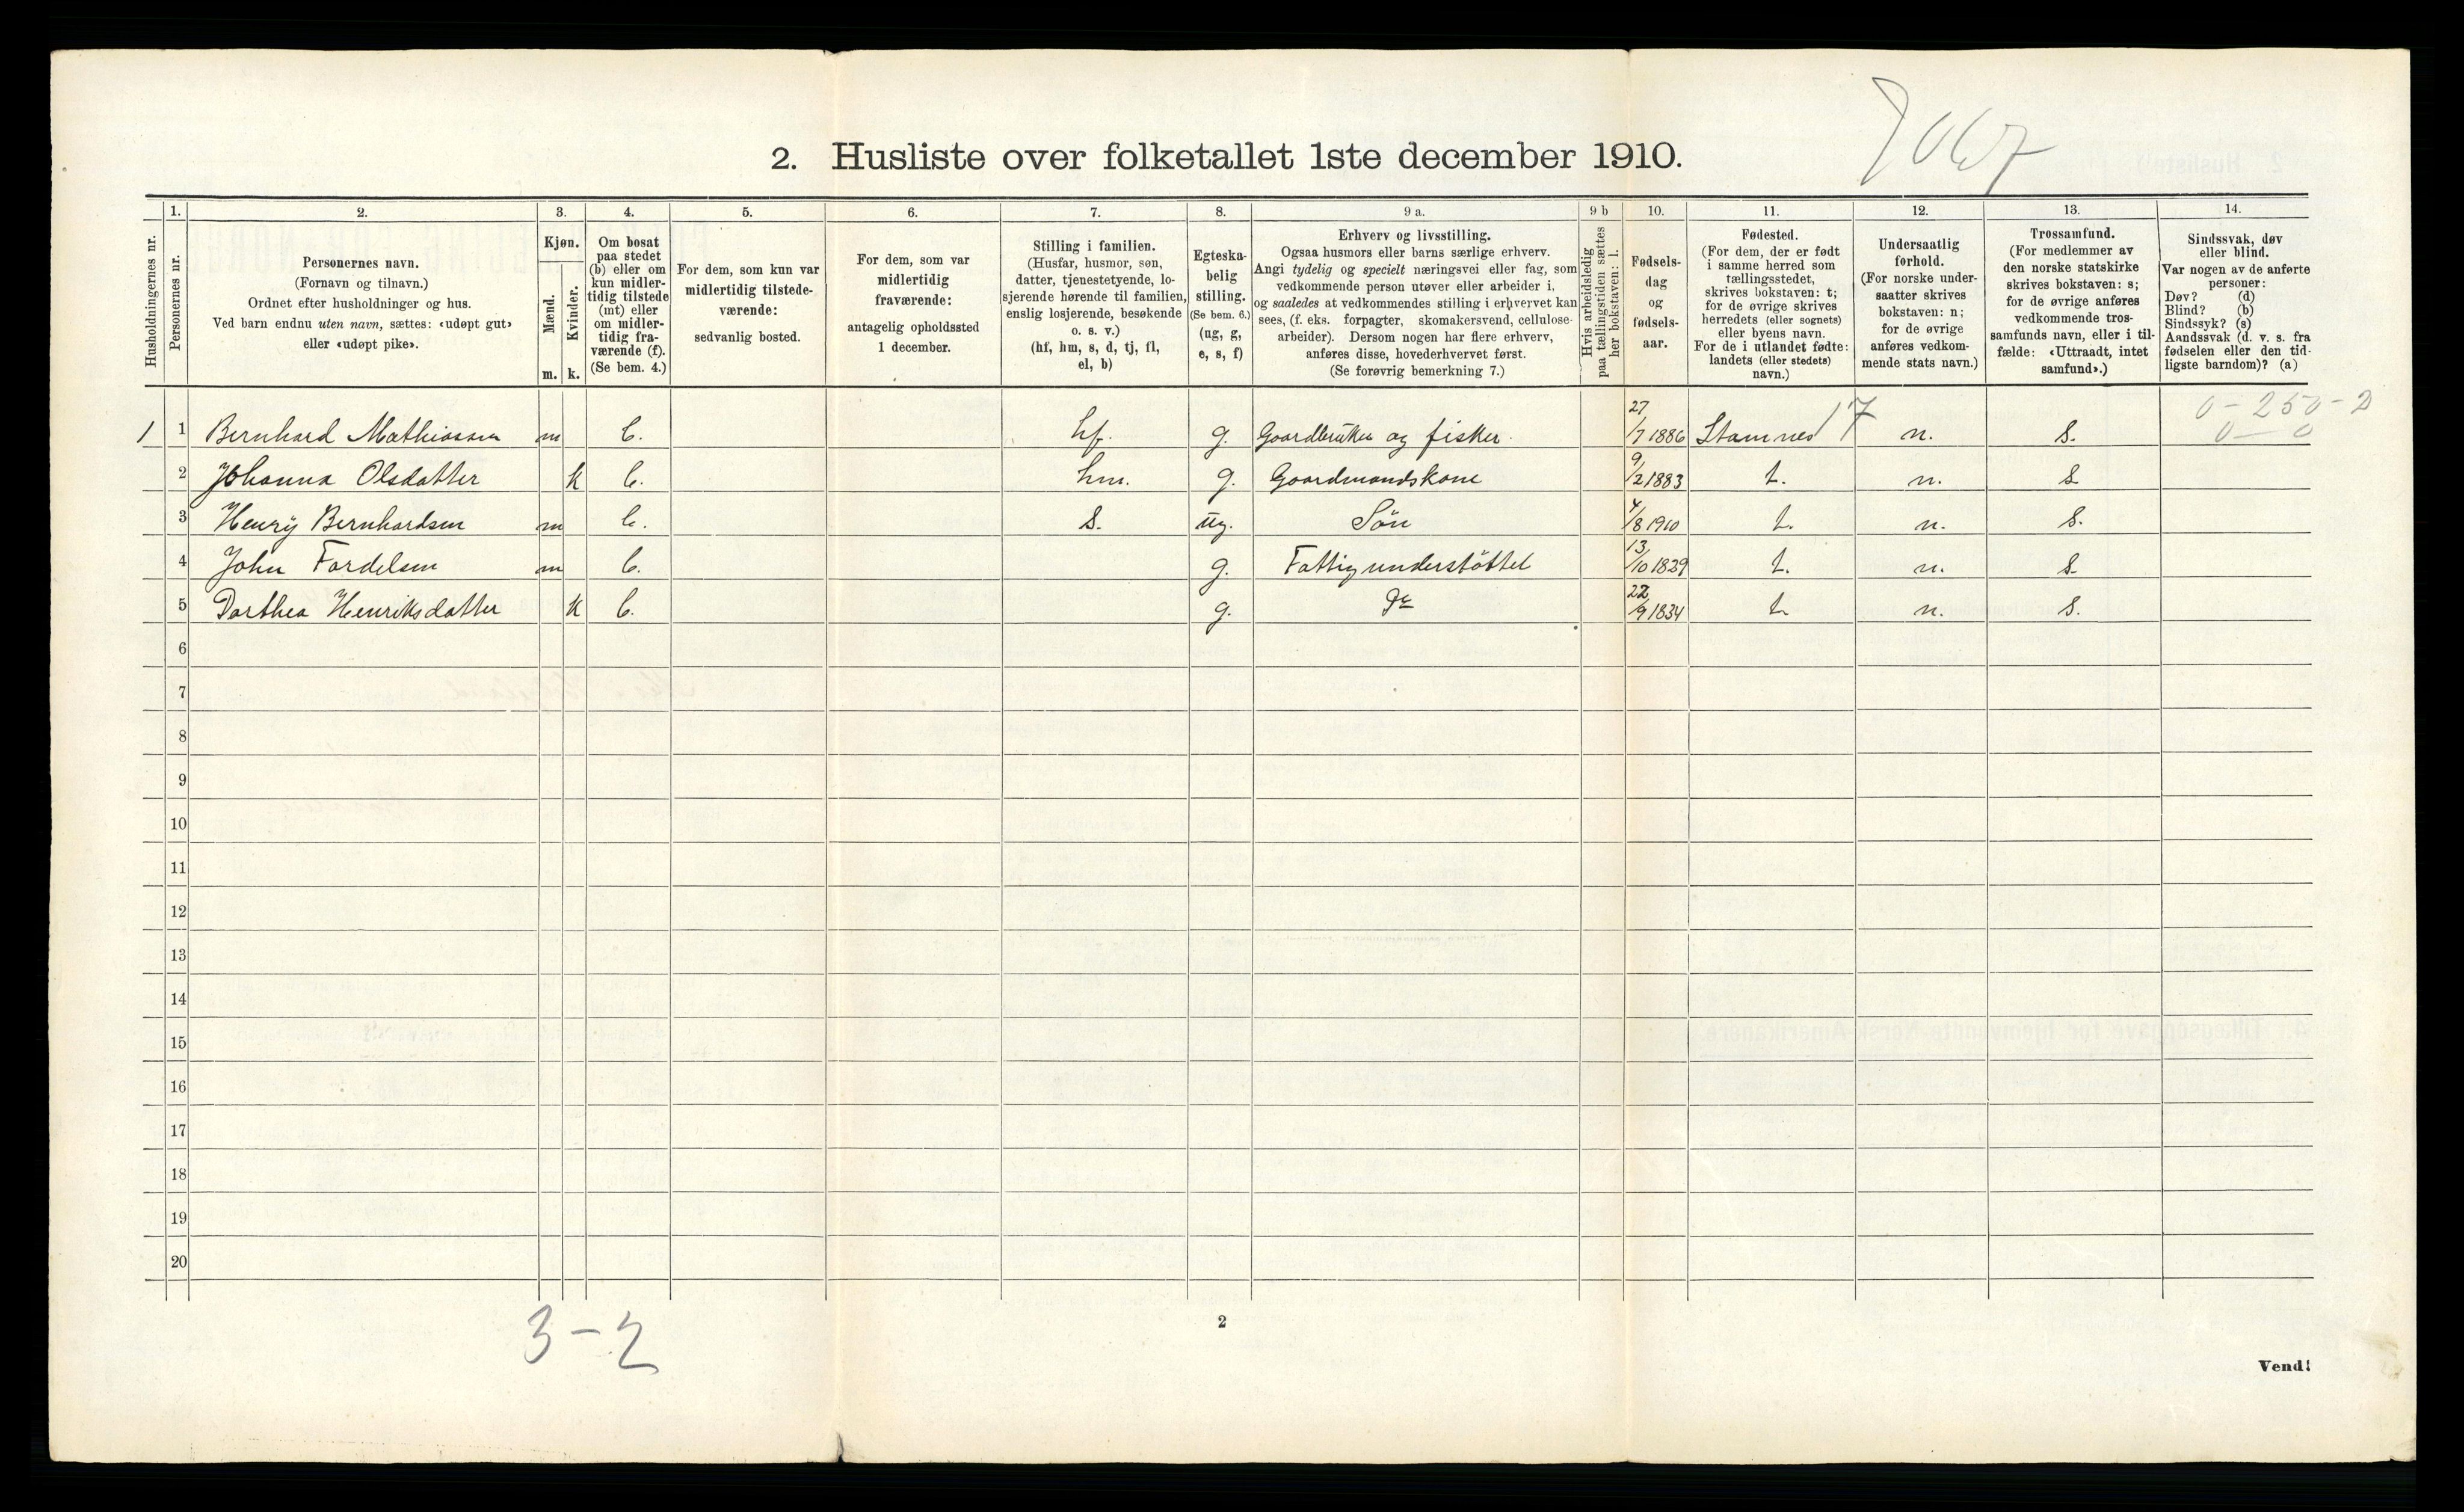 2. Husliste over folketallet 1ste december 1910.
Husholdningernes nr.
1.
Personernes nr.
2.
Personernes navn.
(Fornavn og tilnavn.)
Ordnet efter husholdninger og hus.
Ved barn endnu uten navn, sættes: «udøpt gut»
eller «udøpt pike».
3.
Kjøn.
Mænd.
Kvinder.
m. k.
4.
Om bosat
paa stedet
(b) eller om
kun midler-
tidig tilstede
(mt) eller
om midler-
tidig fra-
værende (f).
(Se bem. 4.)
5.
For dem, som kun var
midlertidig tilstede-
værende:
sedvanlig bosted.
6.
For dem, som var
midlertidig
fraværende:
antagelig opholdssted
1 december.
7.
Stilling i familien.
(Husfar, husmor, søn,
datter, tjenestetyende, lo-
sjerende hørende til familien,
enslig losjerende, besøkende
o. s. v.)
(hf, hm, s, d, tj, fl,
el, b)
8.
Egteska-
belig
stilling.
(Se bem. 6.)
(ug, g,
e, s, f)
9 a.
Erhverv og livsstilling.
Ogsaa husmors eller barns særlige erhverv.
Angi tydelig og specielt næringsvei eller fag, som
vedkommende person utøver eller arbeider i,
og saaledes at vedkommendes stilling i erhvervet kan
sees, (f. eks. forpagter, skomakersvend, cellulose-
arbeider). Dersom nogen har flere erhverv,
anføres disse, hovederhvervet først.
(Se forøvrig bemerkning 7.)
9 b
Hvis arbeidsledig
paa tællingstiden sættes
her bokstaven: l.
10.
Fødsels-
dag
og
fødsels-
aar.
11.
Fødested.
(For dem, der er født
i samme herred som
tællingsstedet,
skrives bokstaven: t;
for de øvrige skrives
herredets (eller sognets)
eller byens navn.
For de i utlandet fødte:
landets (eller stedets)
navn.)
12.
Undersaatlig
forhold.
(For norske under-
saatter skrives
bokstaven: n;
for de øvrige
anføres vedkom-
mende stats navn.)
13.
Trossamfund.
(For medlemmer av
den norske statskirke
skrives bokstaven: s;
for de øvrige anføres
vedkommende tros-
samfunds navn, eller i til-
fælde: «Uttraadt, intet
samfund».)
14.
Sindssvak, døv
eller blind.
Var nogen av de anførte
personer:
Døv? (d)
Blind? (b)
Sindssyk? (s)
Aandssvak (d. v. s. fra
fødselen eller den tid-
ligste barndom)? (a)
0-250-2
0-0
1 1 Bernhard Mathiassen m b. hf. g. Gaardbruker og fisker. 27/7 1886 Stamnes 17 n. s.
2 Johanna Olsdatter k b. hm. g. Gaardmandskone 9/2 1883 t. n. s
3 Henry Bernhardsen m b. s. ug. Sön 4/8 1910 t. n. s.
4 John Fordelsen m b. g. Fattigunderstöttet 13/10 1839 t. n. s
5 Dorthea Henriksdatter k b. g. Do 22/9 1834 t. n. s.
6
7
8
9
10
11
12
13
14
15
16
17
18
19
20
3-2
2
Vend!